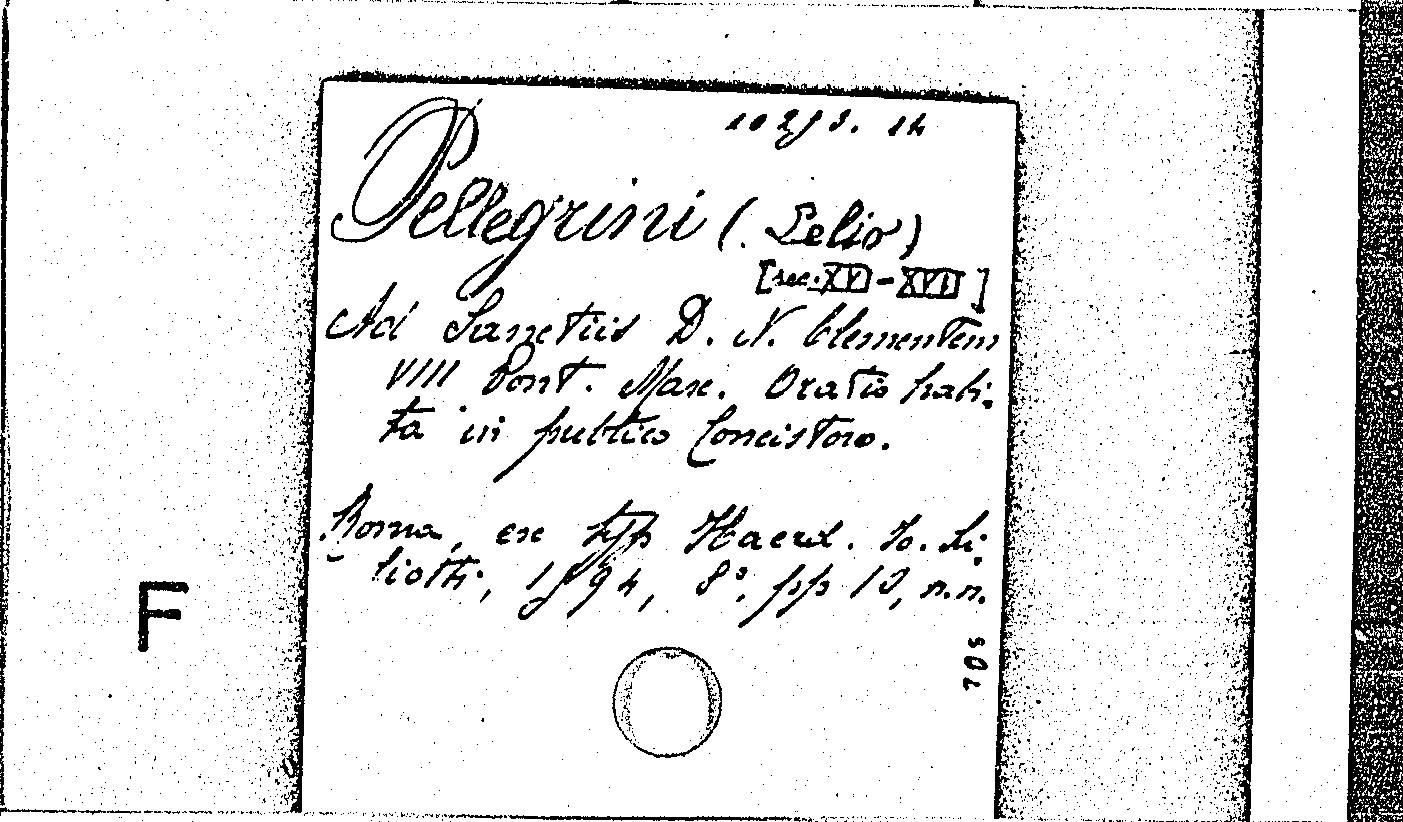 10293. 14
Pellegrini (Lelio)
[sec. XV-XVI]
Ad Sanctiis D. N. Clementem
VIII Pont. Max. Oratio habi-
ta in publico Concistoro.
Roma, ex typ Haered. Jo. Li-
liotti, 1594, 8°, pp 12, n.n.
F